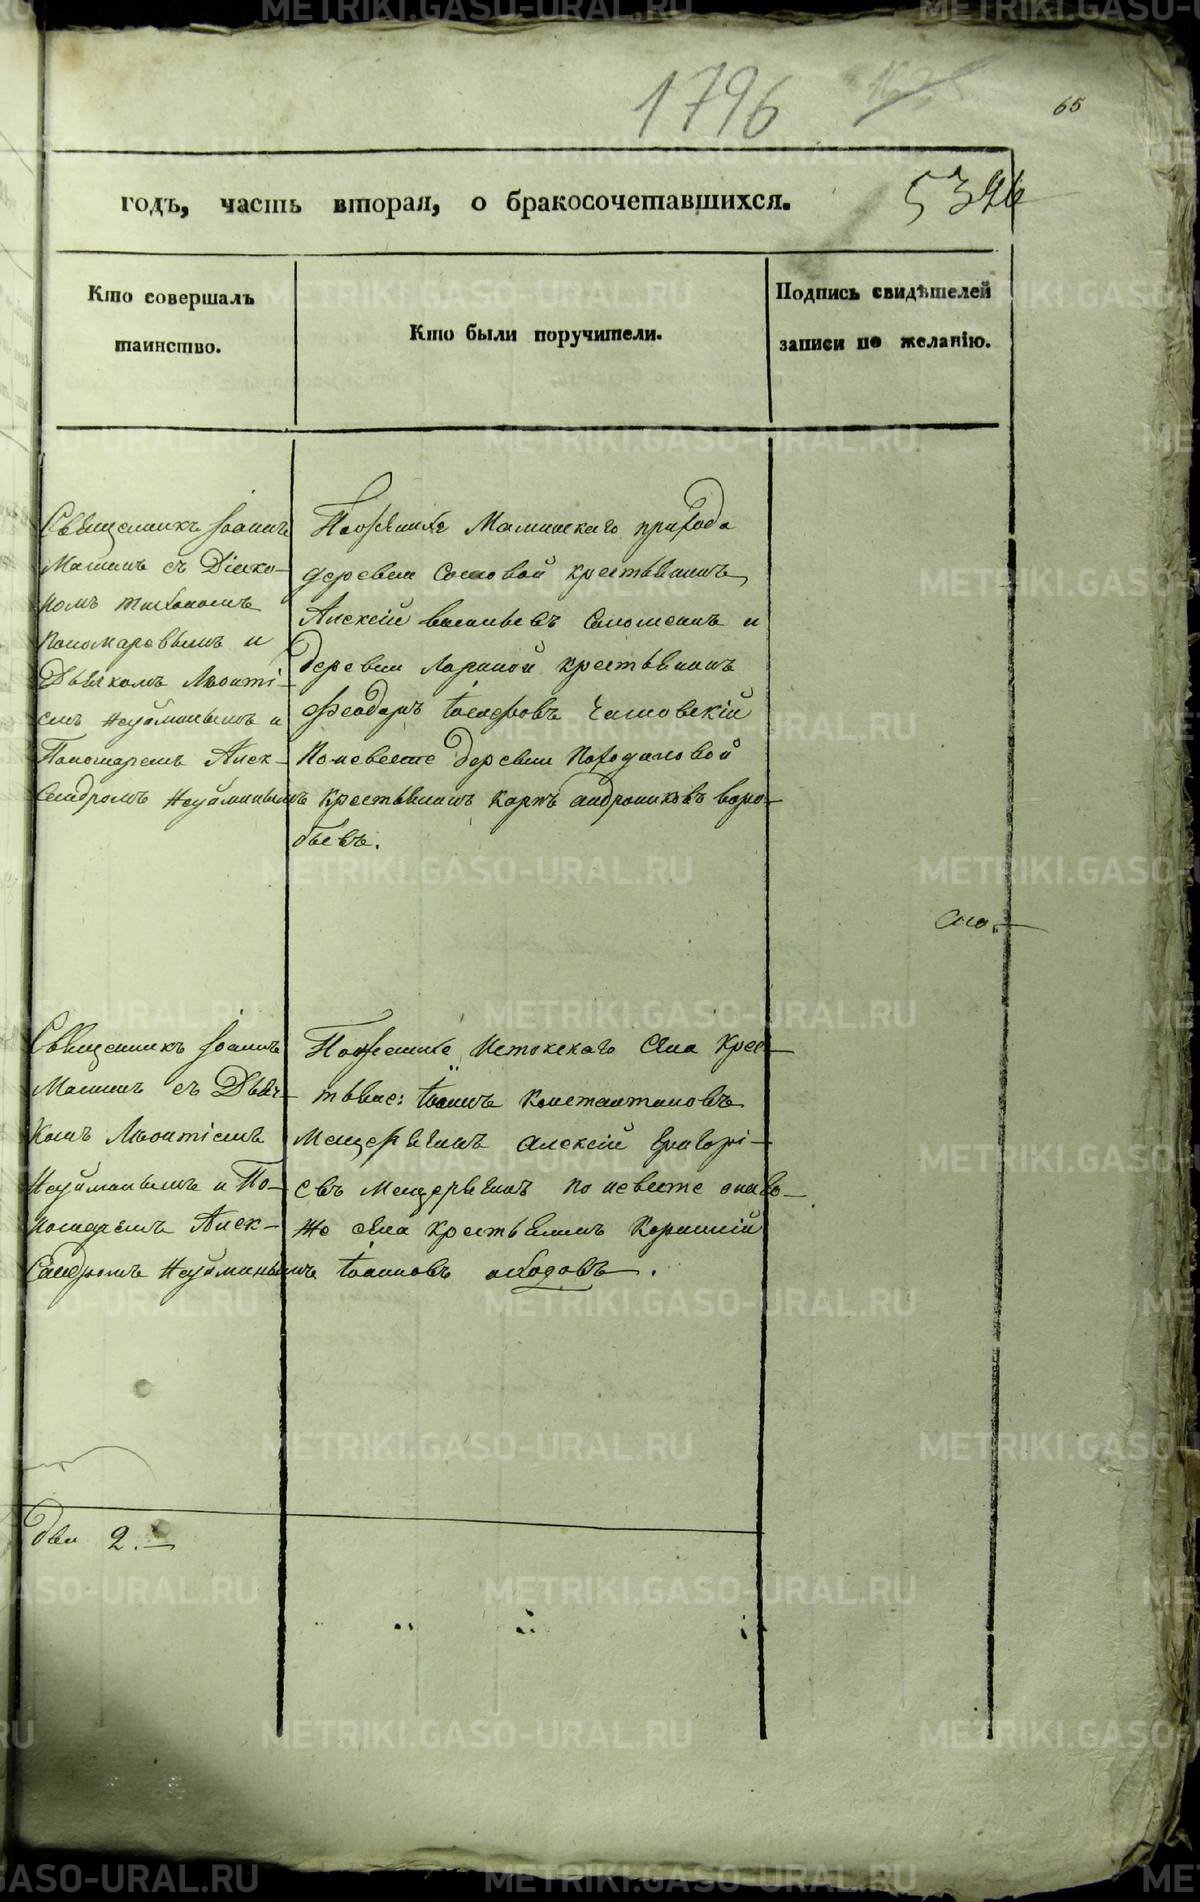 1796
65
годъ, часть вторая, о бракосочетавшихся.
5396
Кто совершалъ
таинство.
Кто были поручители.
Подпись свидѣтелей
записи по желанію.
Священникъ Іоаннъ
Мапинъ съ Діако-
номъ Тихономъ
Пономаревымъ и
Дьячкомъ Леонті-
емъ Неуйминымъ и
Пономаремъ Алек-
сандромъ Неуйминымъ
По женихѣ Маминскаго прихода
деревни Сосновой крестьянинъ
Алексій Васильевъ Соломеинъ и
деревни Лариной крестьянинъ
Феодоръ Іосифовъ
По невесте деревни Походиловой
крестьянинъ Карпъ Андрониковъ Воро-
бьевъ.
Священникъ Іоаннъ
Мапинъ съ Дьяч-
комъ Леонтіемъ
Неуйминымъ и По-
номаремъ Алек-
сандромъ Неуйминымъ
По женихе Истокскаго села крес-
тьяне: Іоаннъ Константиновъ
Мещерягинъ Алексій Григорі-
евъ Мещерягинъ по невесте онаго-
же села крестьянинъ Корнилій
Іоанновъ
два 2.
METRIKI.GASO-URAL.RU